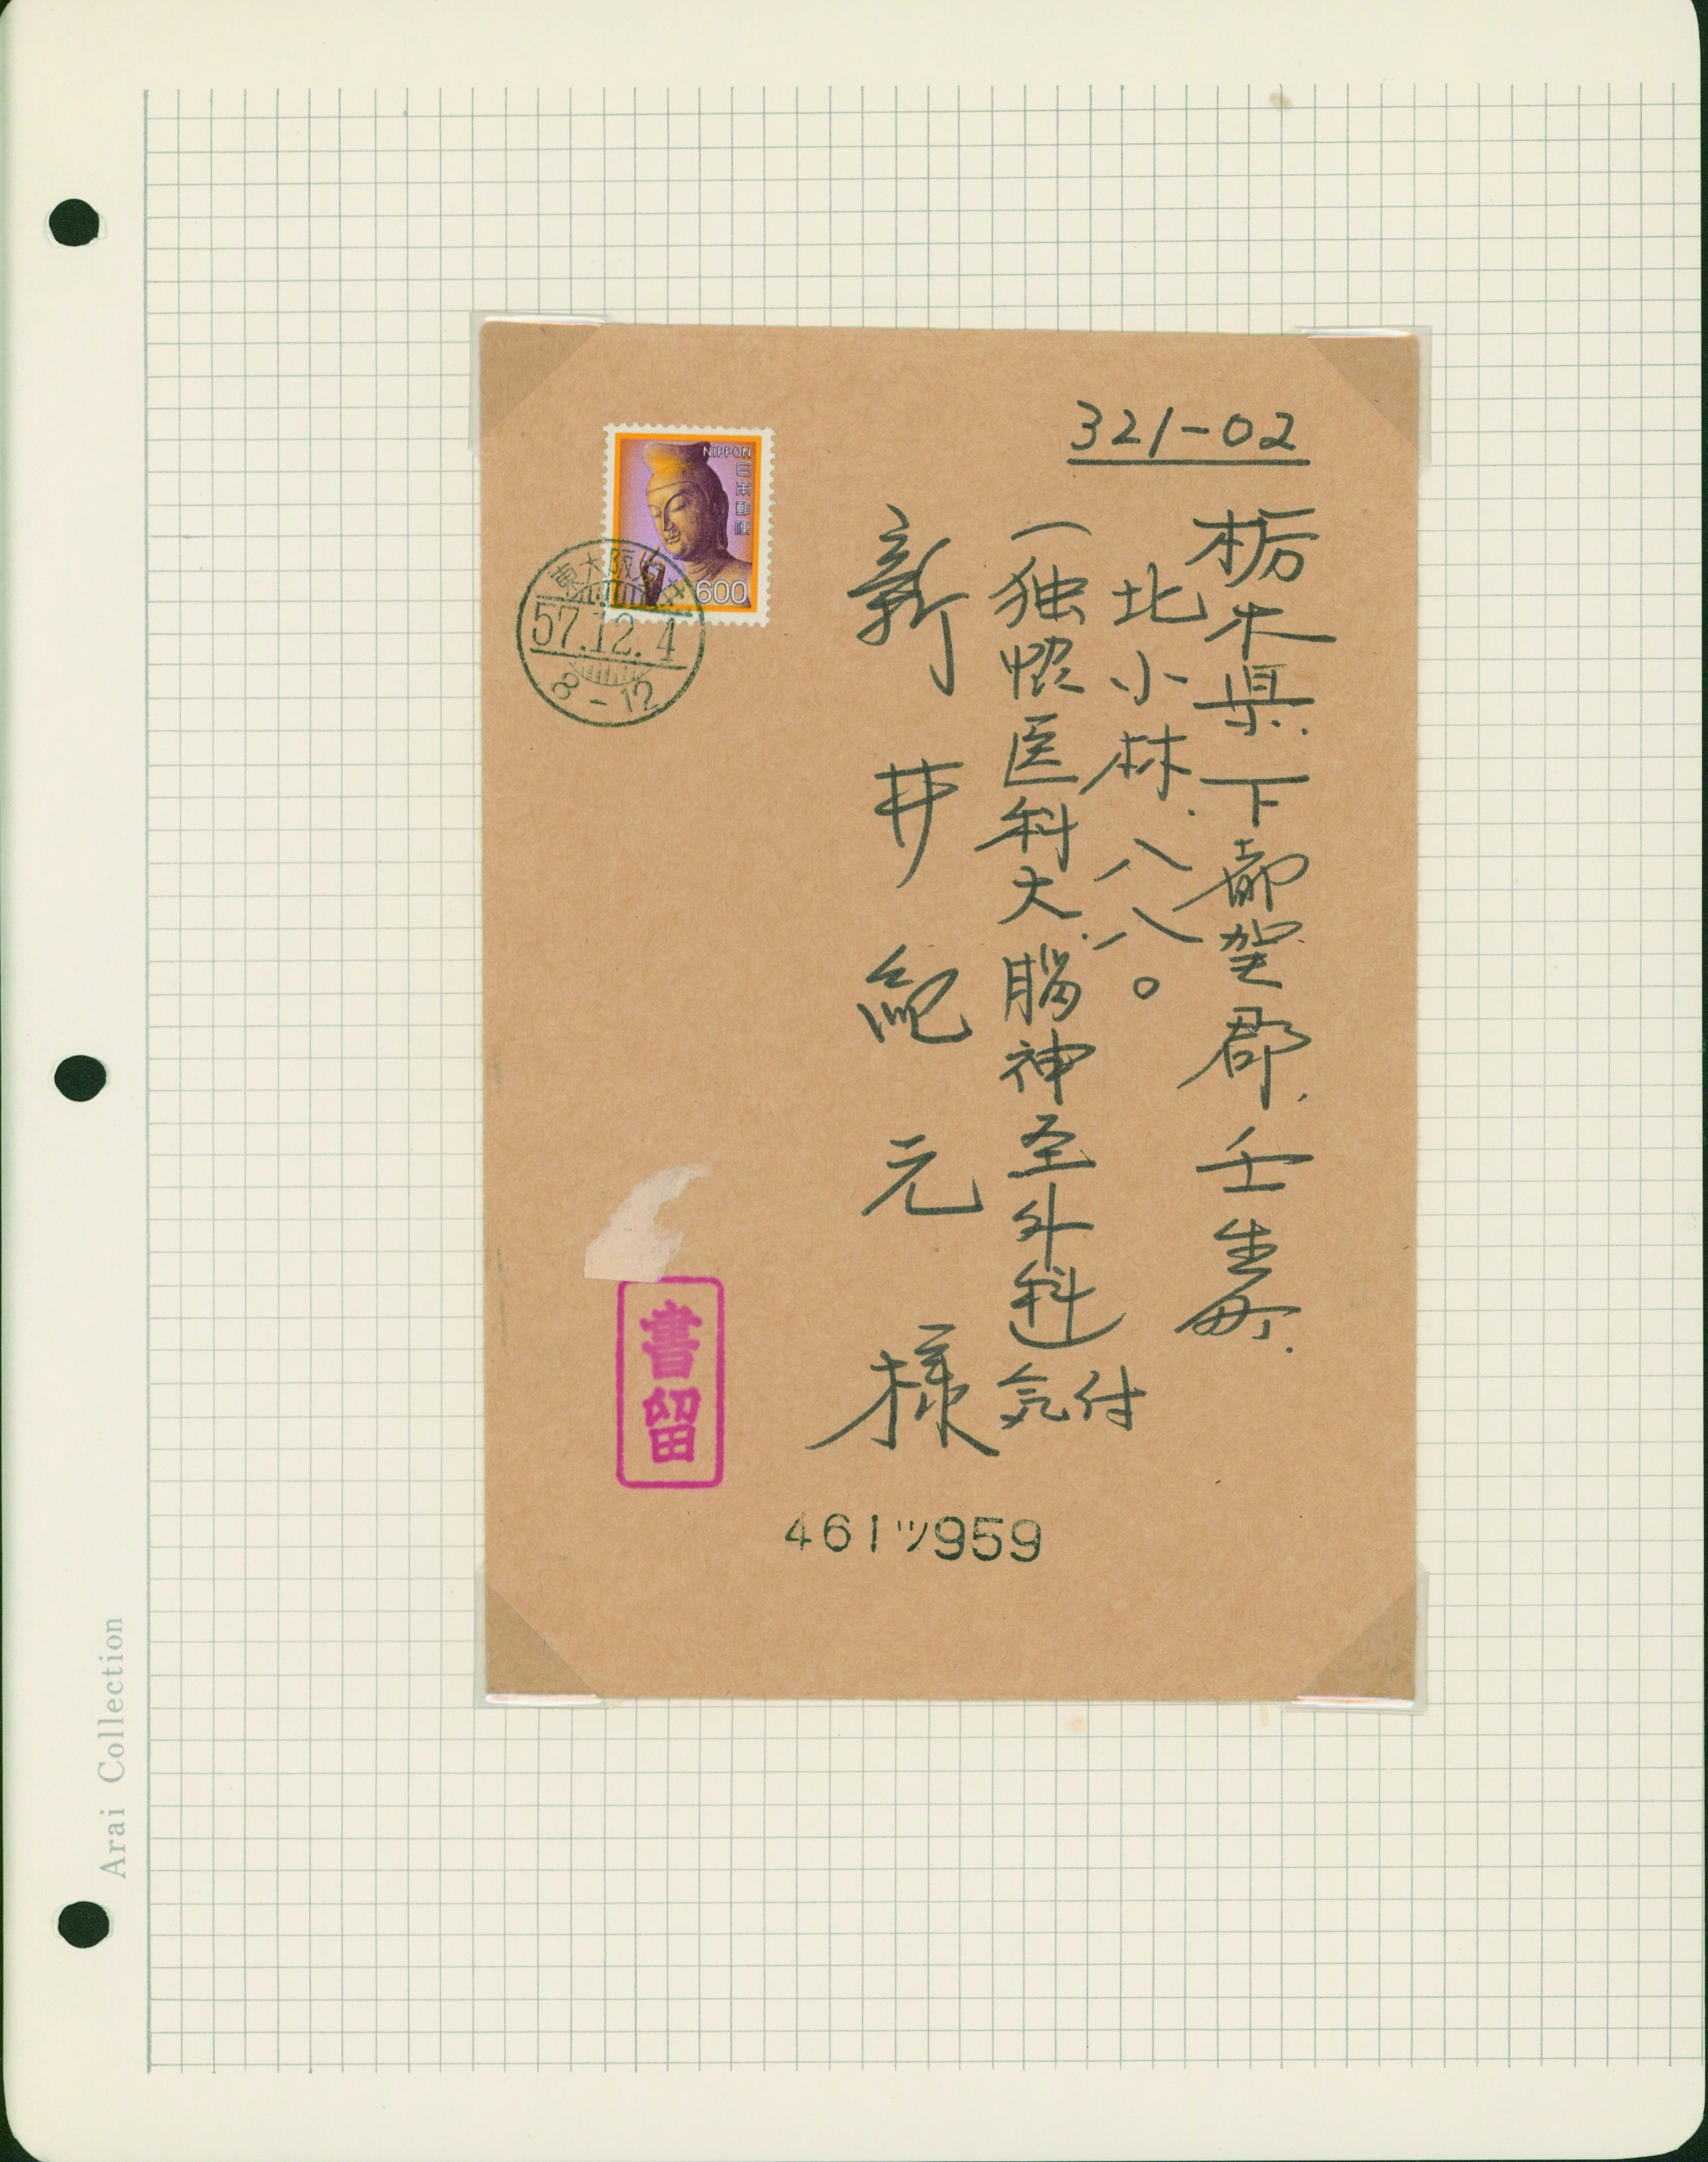 321-02
栃木県下都賀郡壬生町
北小林八八〇
(独協医科大脳神経外科)
気付
新井紀元様
NIPPON
日本郵便
600
東大阪
57.12.4
8-12
書留
461ツ959
Arai Collection